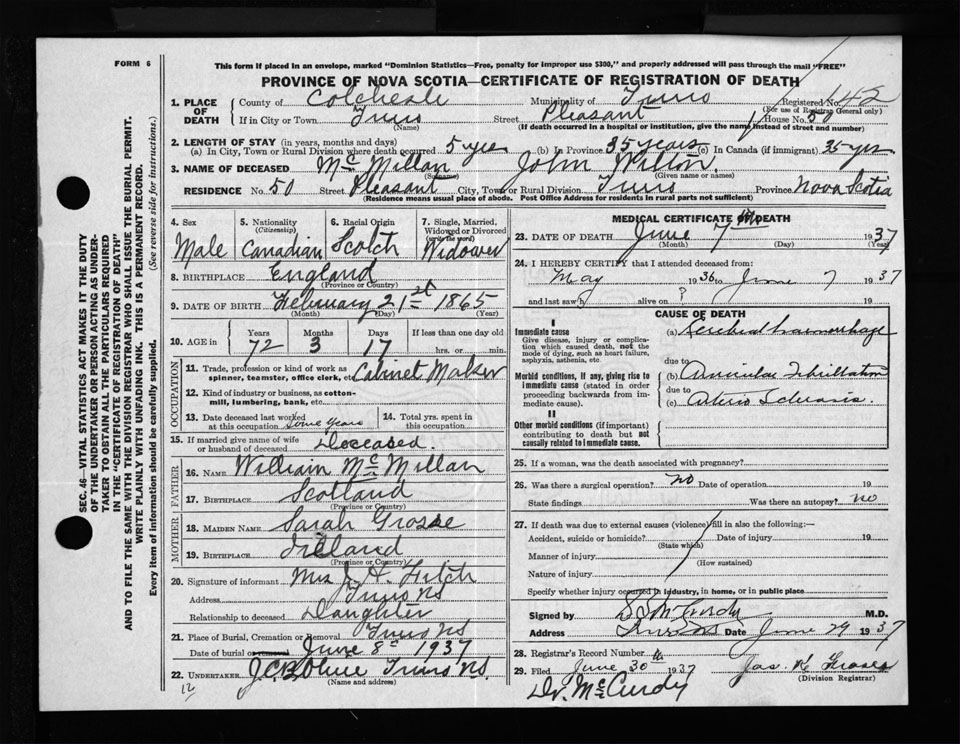 FORM 6
This form if placed in an envelope, marked "Dominion Statistics—Free, penalty for improper use $300," and properly addressed will pass through the mail "FREE"
PROVINCE OF NOVA SCOTIA—CERTIFICATE OF REGISTRATION OF DEATH
1. PLACE OF DEATH County of Colchester Municipality of Truro Registered No. 142
(For use of Registrar General only)
If in City or Town Truro Street Pleasant House No. 50
(Name) (If death occurred in a hospital or institution, give the name instead of street and number)
2. LENGTH OF STAY (in years, months and days)
(a) In City, Town or Rural Division where death occurred 5 yrs (b) In Province 35 years (c) In Canada (if immigrant) 35 yrs
3. NAME OF DECEASED McMillan John Wilton.
(Surname) (Given name or names)
RESIDENCE No. 50 Street Pleasant City, Town or Rural Division Truro Province Nova Scotia
(Residence means usual place of abode. Post Office Address for residents in rural parts not sufficient)
SEC. 46—VITAL STATISTICS ACT MAKES IT THE DUTY
OF THE UNDERTAKER OR PERSON ACTING AS UNDER-
TAKER TO OBTAIN ALL THE PARTICULARS REQUIRED
IN THE "CERTIFICATE OF REGISTRATION OF DEATH"
AND TO FILE THE SAME WITH THE DIVISION REGISTRAR WHO SHALL ISSUE THE BURIAL PERMIT.
WRITE PLAINLY WITH UNFADING INK. THIS IS A PERMANENT RECORD.
Every item of information should be carefully supplied. (See reverse side for instructions.)
4. Sex 5. Nationality 6. Racial Origin 7. Single, Married,
(Citizenship) Widowed or Divorced
(write the word)
Male Canadian Scotch Widower
8. BIRTHPLACE England
(Province or Country)
9. DATE OF BIRTH February 21st 1865
(Month) (Day) (Year)
10. AGE in Years Months Days If less than one day old
72 3 17 hrs. or min.
OCCUPATION
11. Trade, profession or kind of work as
spinner, teamster, office clerk, etc. Cabinet Maker
12. Kind of industry or business, as cotton-
mill, lumbering, bank, etc.
13. Date deceased last worked
at this occupation Some years
14. Total yrs. spent in
this occupation
15. If married give name of wife
or husband of deceased Deceased.
FATHER
16. NAME William McMillan
17. BIRTHPLACE Scotland
(Province or Country)
MOTHER
18. MAIDEN NAME Sarah
19. BIRTHPLACE Ireland
(Province or Country)
20. Signature of informant Mrs J. H. Fitch
Address Truro NS
Relationship to deceased Daughter
21. Place of Burial, Cremation or Removal Truro NS
Date of burial or removal June 8th 1937
22. UNDERTAKER Truro NS.
(Name and address)
12
MEDICAL CERTIFICATE OF DEATH
23. DATE OF DEATH June 7th 1937
(Month) (Day) (Year)
24. I HEREBY CERTIFY that I attended deceased from:
May 1936 to June 7 1937
and last saw h alive on ? 19
CAUSE OF DEATH
I
Immediate cause (a) Cerebral haemorrhage
Give disease, injury or complica-
tion which caused death, not the
mode of dying, such as heart failure,
asphyxia, asthenia, etc.
due to
Morbid conditions, if any, giving rise to
immediate cause (stated in order
proceeding backwards from im-
mediate cause).
(b) Auricular Fibrillation
due to
(c) Arterio Sclerosis.
II
Other morbid conditions (if important)
contributing to death but not
causally related to immediate cause.
25. If a woman, was the death associated with pregnancy?
26. Was there a surgical operation? no Date of operation 19
State findings Was there an autopsy? no
27. If death was due to external causes (violence) fill in also the following:—
Accident, suicide or homicide? Date of injury 19
(State which)
Manner of injury
(How sustained)
Nature of injury
Specify whether injury occurred in industry, in home, or in public place
Signed by McCurdy M.D.
Address Truro NS Date June 29 1937
28. Registrar's Record Number
29. Filed June 30 1937 Jas.
(Division Registrar)
Dr. McCurdy